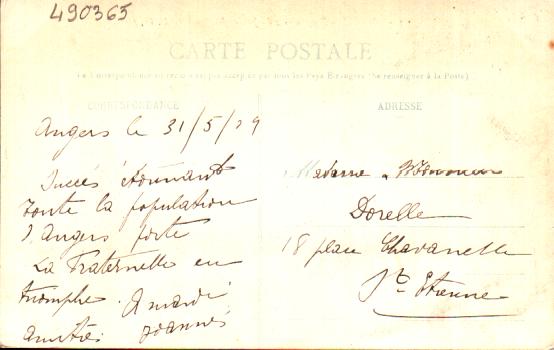 490365
CARTE POSTALE
La Correspondance au recto n'est pas acceptée par tous les Pays Étrangers (Se renseigner à la Poste)
CORRESPONDANCE
ADRESSE
Angers le 31/5/29
Succès étonnant
Toute la population
d'Angers porte
La Fraternelle en
triomphe. A mardi
amitiés Joannès
Madame
Dorelle
18 place Chavanelle
St Etienne